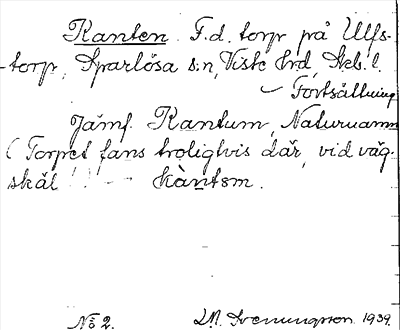 Kanten. F.d. torp på Ulfs-
torp, Sparlösa s:n, Viste hrd, Skb. l.
Fortsättning
Jämf. Kantum, Naturnamn
(Torpet fans troligtvis där, vid väg-
skäl ! ! - - Kàntσm.
No 2.
Svenungsson 1939.